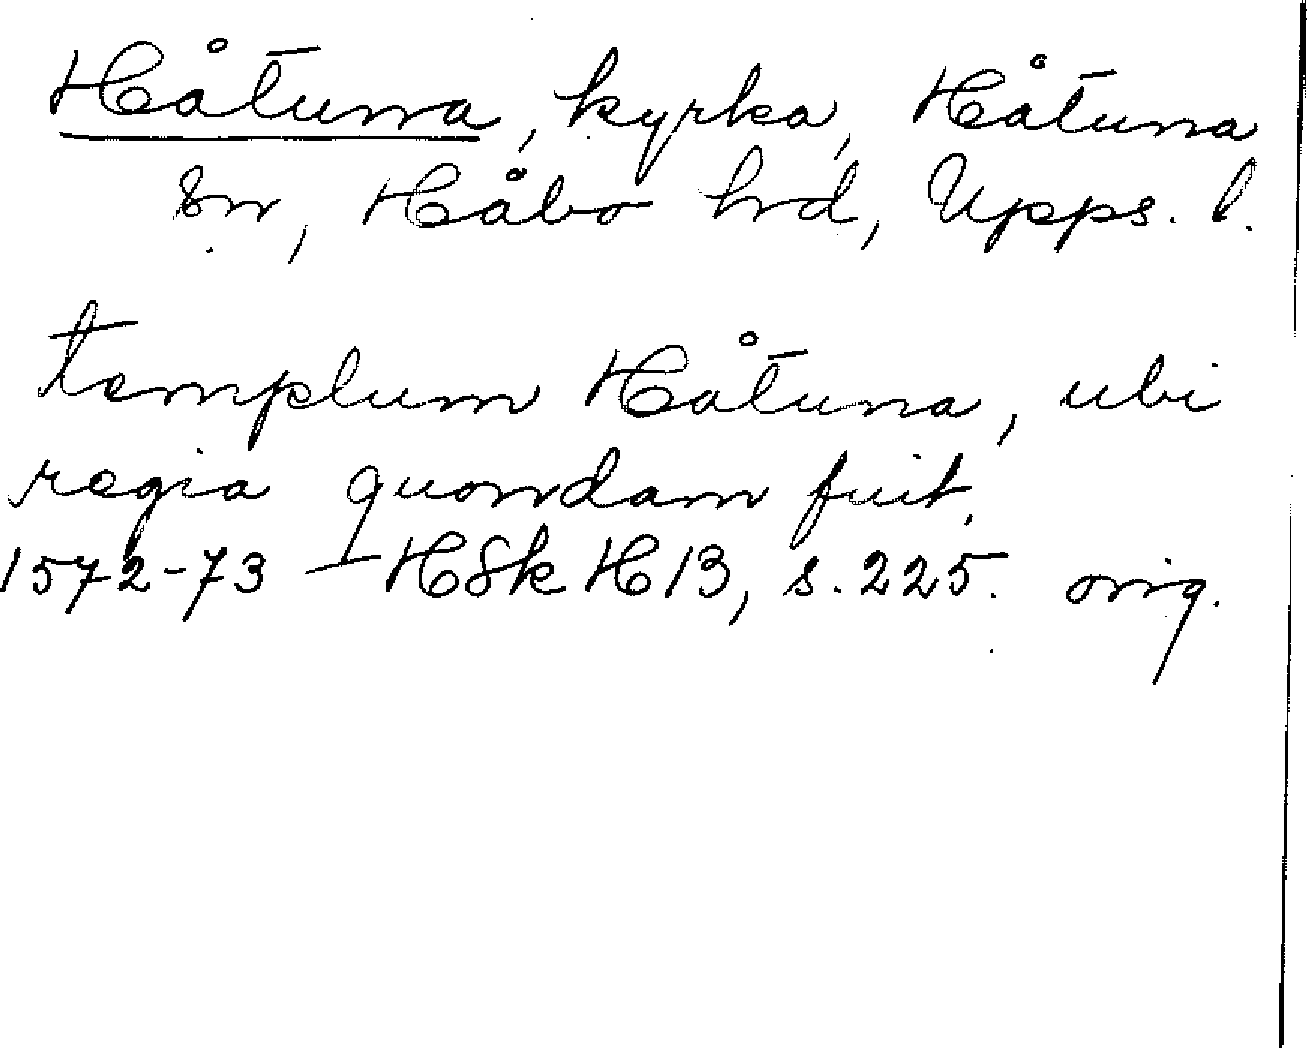 Håtuna, kyrka, Håtuna
sn, Håbo hd, Upps. l.
templum Håtuna, ubi
regia quondam fuit.
1572-73 HSk H 13, s. 225. orig.